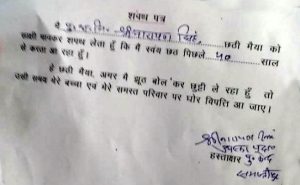 शपथ पत्र
श्रीनारायण सिंह, छठी मैया को
साक्षी मानकर शपथ लेता हूँ कि मैं स्वयं छठ पिछले 10 साल
से करता आ रहा हूँ।
हे छठी मैया, अगर मैं झूठ बोल कर छुट्टी ले रहा हूँ तो
उसी समय मेरे बच्चा एवं मेरे समस्त परिवार पर घोर विपत्ति आ जाए।
श्रीनारायण सिंह
हस्ताक्षर